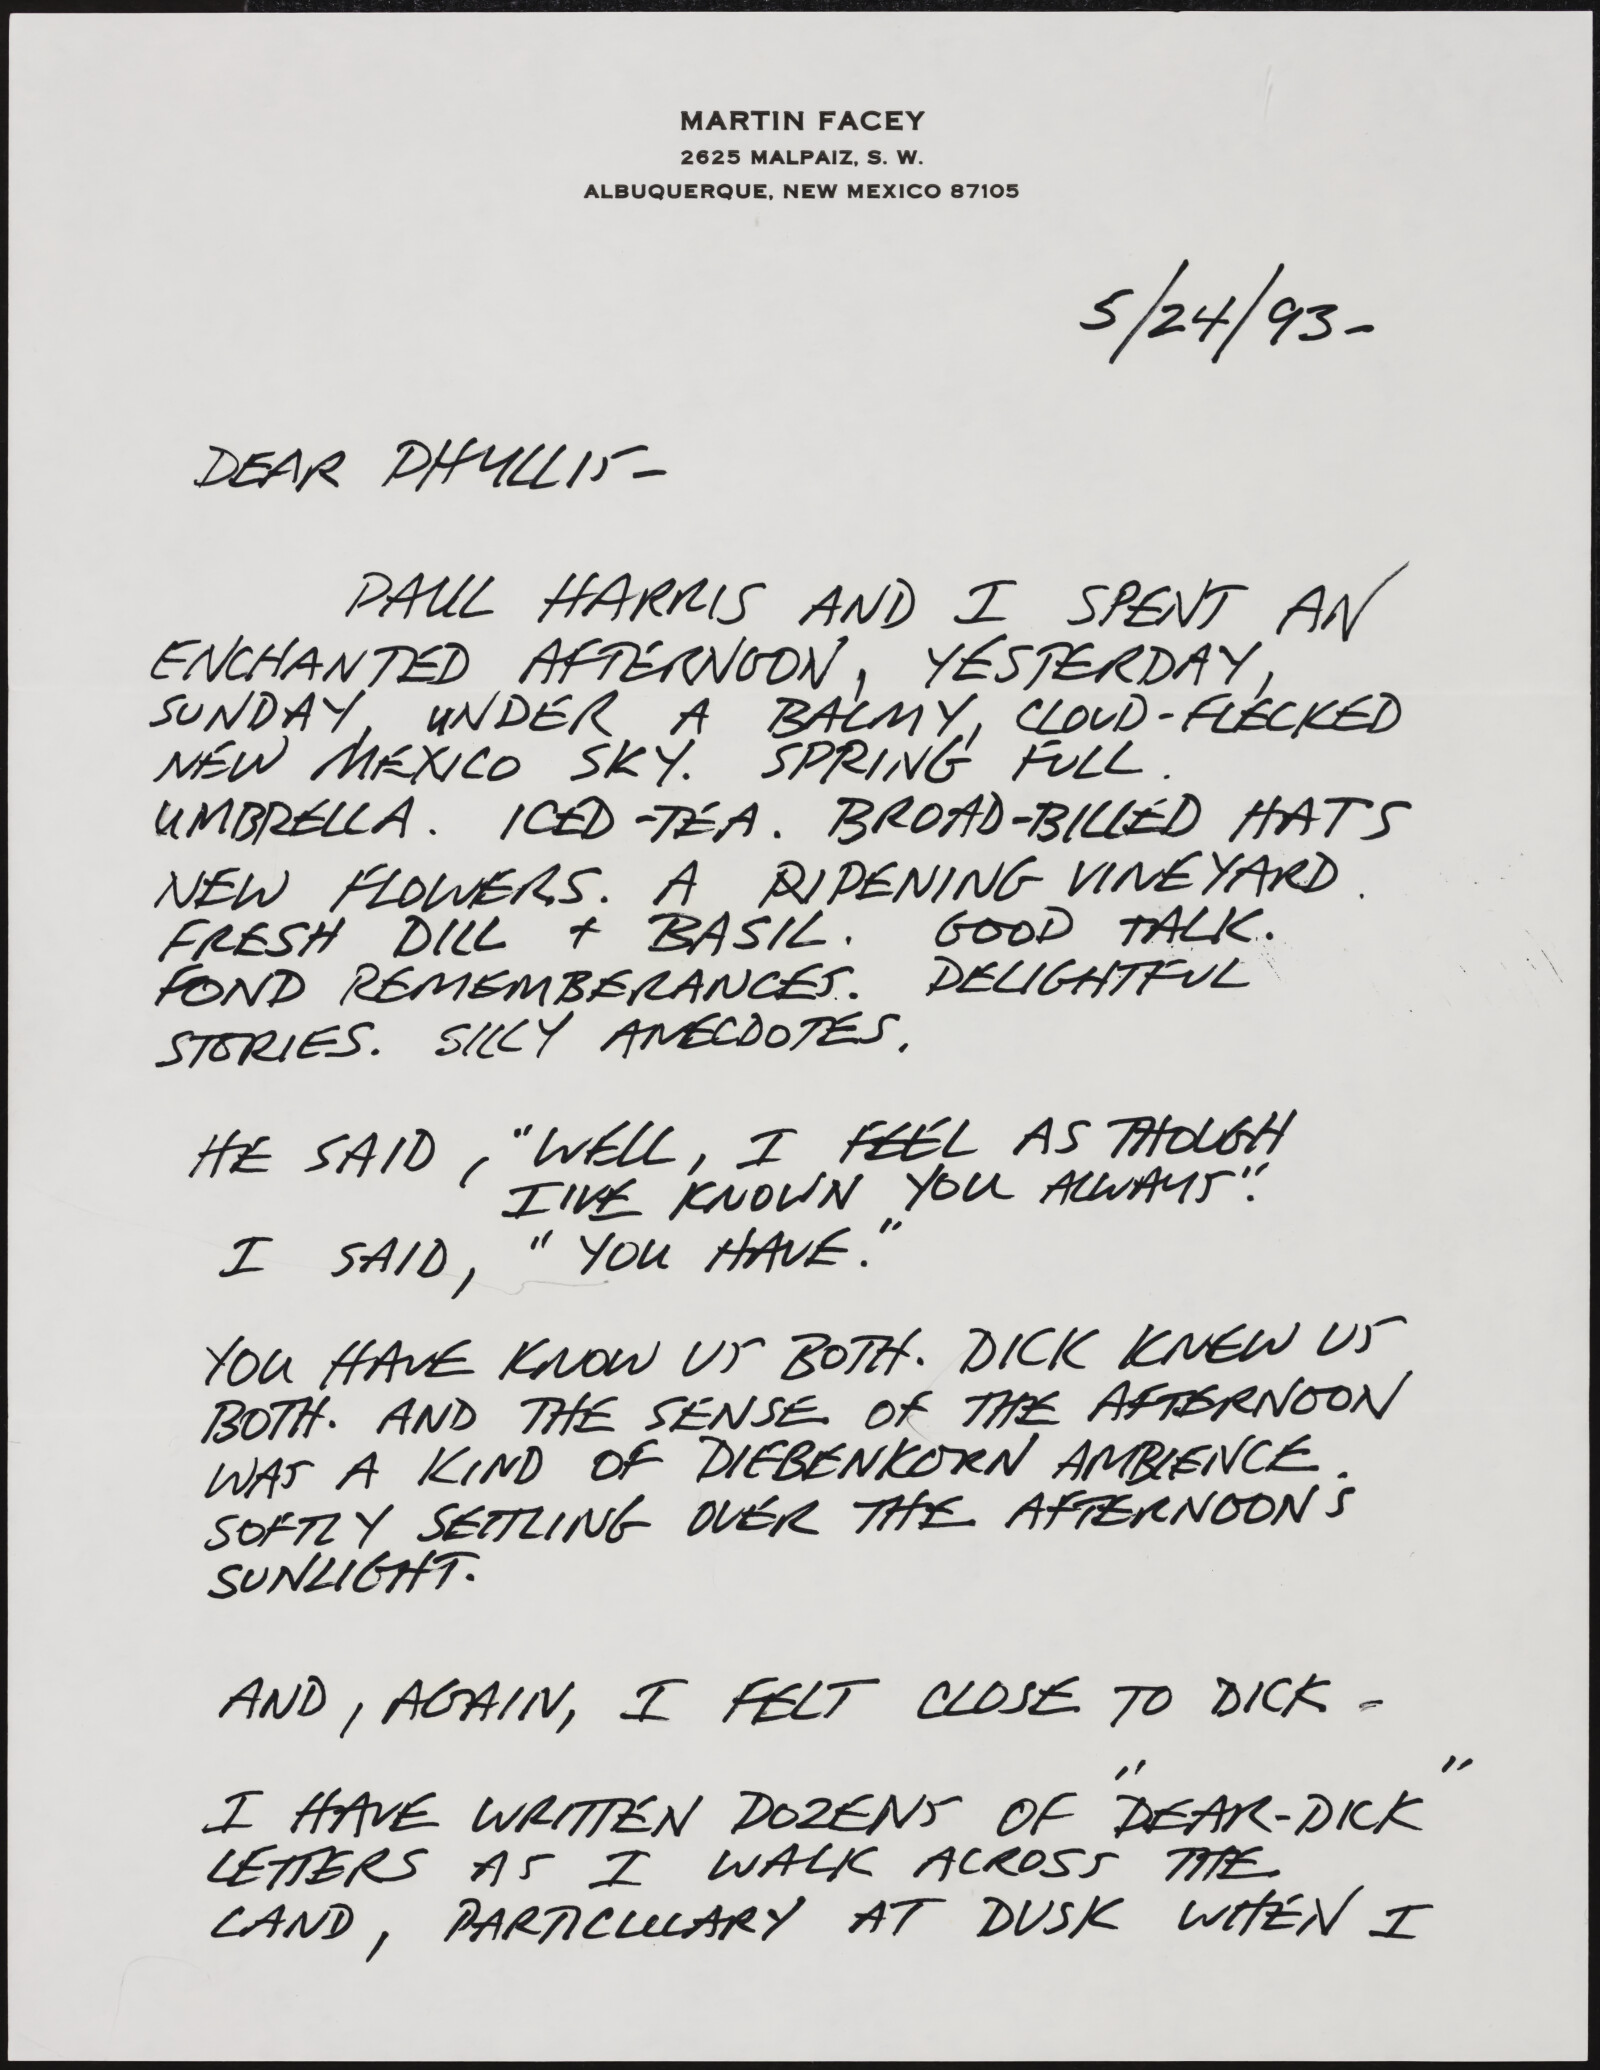 MARTIN FACEY
2625 MALPAIZ, S. W.
ALBUQUERQUE, NEW MEXICO 87105
5/24/93-
DEAR PHYLLIS-
PAUL HARRIS AND I SPENT AN
ENCHANTED AFTERNOON, YESTERDAY,
SUNDAY, UNDER A BALMY, CLOUD-FLECKED
NEW MEXICO SKY. SPRING FULL.
UMBRELLA. ICED-TEA. BROAD-BILLED HATS
NEW FLOWERS. A RIPENING VINEYARD.
FRESH DILL + BASIL. GOOD TALK.
FOND REMEMBERANCES. DELIGHTFUL
STORIES. SILLY ANECDOTES.
HE SAID, "WELL, I FEEL AS THOUGH
I'VE KNOWN YOU ALWAYS".
I SAID, "YOU HAVE."
YOU HAVE KNOW US BOTH. DICK KNEW US
BOTH. AND THE SENSE OF THE AFTERNOON
WAS A KIND OF DIEBENKORN AMBIENCE.
SOFTLY SETTLING OVER THE AFTERNOONS
SUNLIGHT.
AND, AGAIN, I FELT CLOSE TO DICK -
I HAVE WRITTEN DOZENS OF "DEAR-DICK"
LETTERS AS I WALK ACROSS THE
LAND, PARTICULARY AT DUSK WHEN I